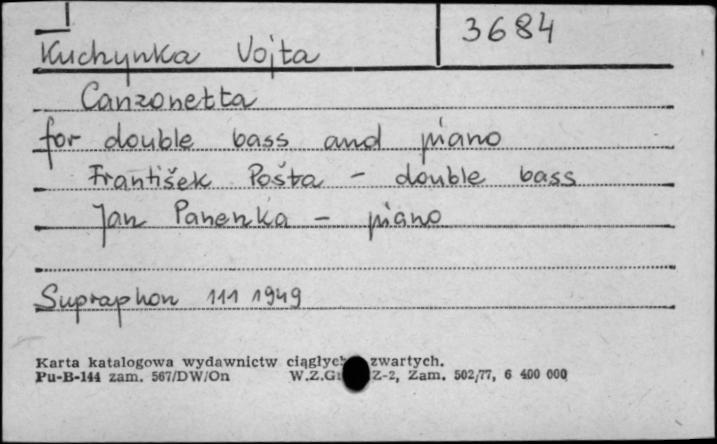 3684
Kuchynka Vojta
Canzonetta
for double bass and piano
František Pošta - double bass
Jan Panenka - piano
Supraphon 111 1949
Karta katalogowa wydawnictw ciągłych zwartych.
Pu-B-144 zam. 567/DW/On W.Z.G Z-2, Zam. 502/77, 6 400 000